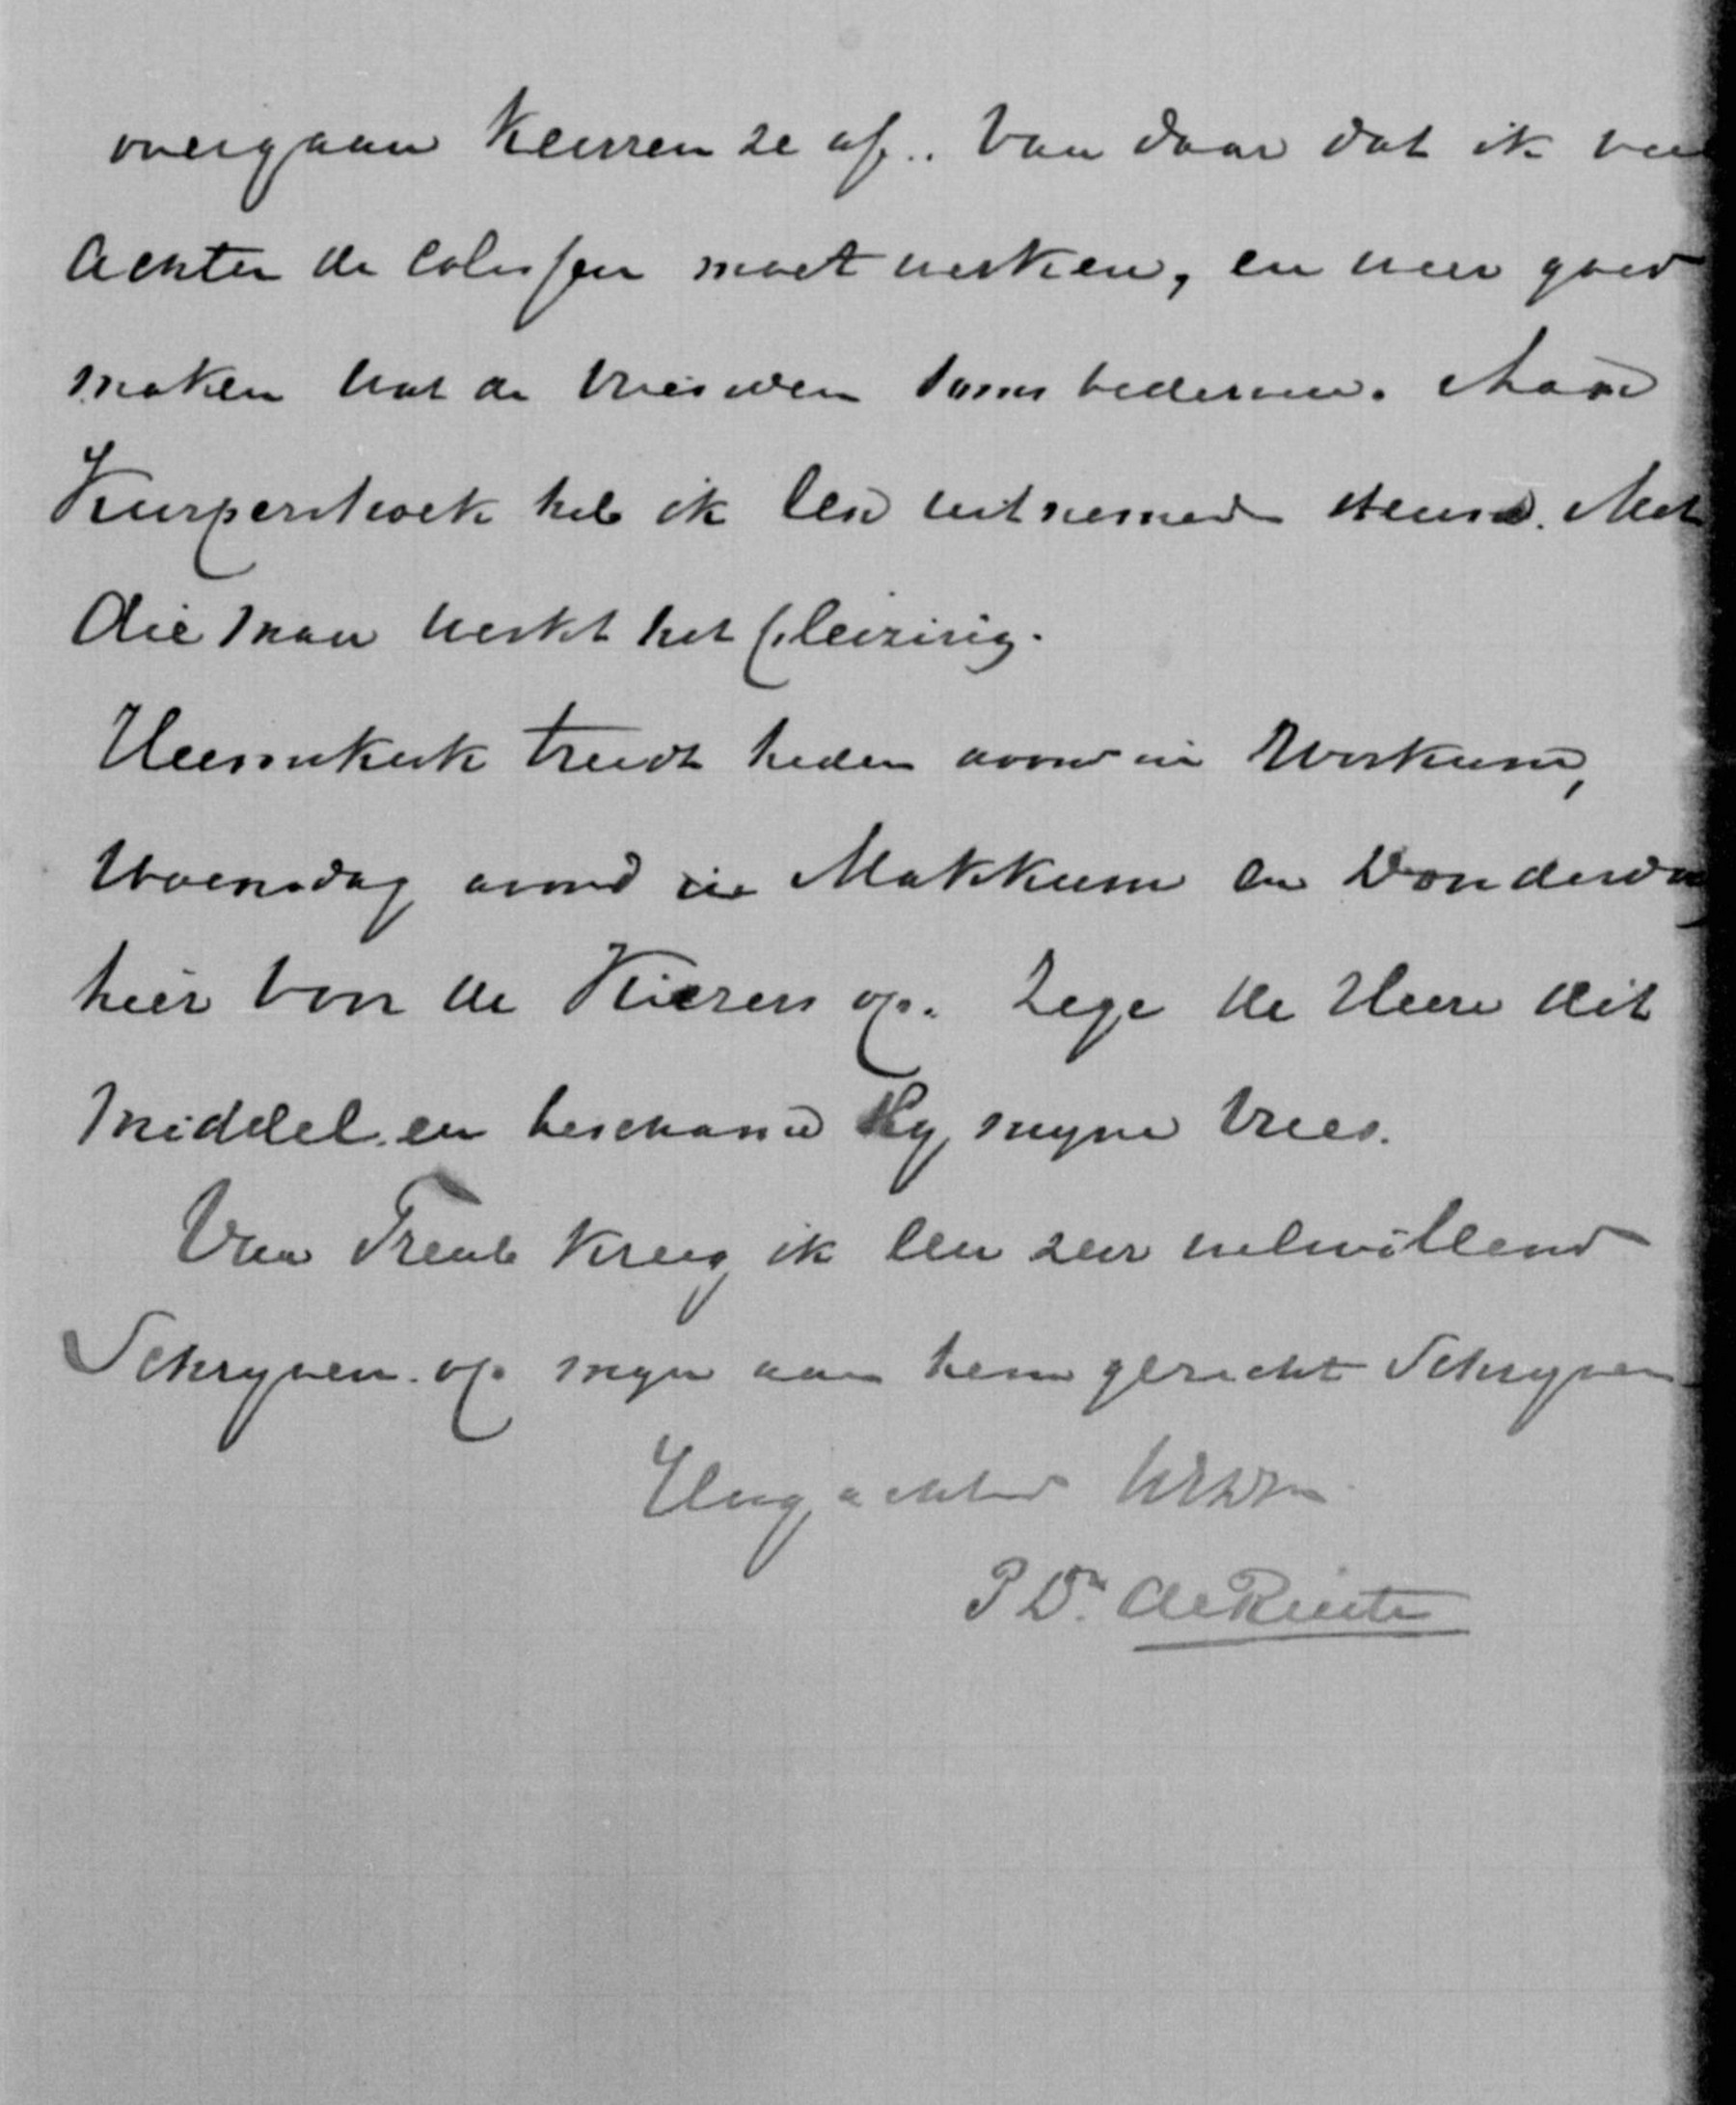 overgaan keuren ze af. Van daar dat ik veel
achter de colissen moet werken, en weer goed
maken wat de vrienden soms bederven. Aan
Kuipershoek heb ik een uitnemend steun. Met
die man werkt het pleizirig.
Heemskerk treedt heden avond in Workum,
Woensdag avond in Makkum en Donderdag
hier voor de Kiezers op. Zege de Heere dit
middel en beschame Hy myne vrees.
Van Treub kreeg ik een zeer welwillend
Schryven op myn aan hem gericht Schryven
Hoogachtend
P Dr. de Ruiter